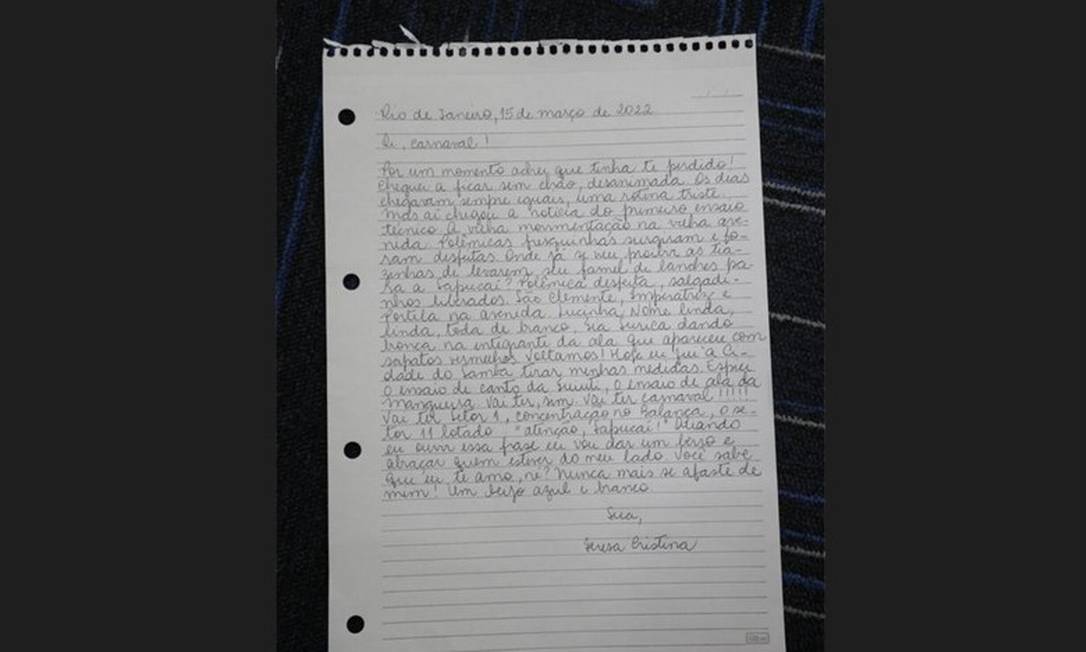 Rio de Janeiro, 15 de março de 2022
Oi, carnaval!
Por um momento achei que tinha te perdido!
Cheguei a ficar sem chão, desanimada. Os dias
chegavam sempre iguais, uma rotina triste.
Mas aí chegou a notícia do primeiro ensaio
técnico. A velha movimentação na velha ave-
nida. Polêmicas pesquinhas surgiram e fo-
ram desfeitas. Onde já se viu proibir as tia-
zinhas de levarem seu farnel de lanches pa-
ra a Sapucaí? Polêmica desfeita, salgadi-
nhos liberados. São Clemente, Imperatriz e
Portela na avenida. Lucinha Nobre linda,
linda, toda de branco, tia Surica dando
bronca na integrante da ala que apareceu com
sapatos vermelhos. Voltamos! Hoje eu fui à Ci-
dade do Samba tirar minhas medidas. Espiei
o ensaio de canto da Tuiuti, o ensaio de ala da
Mangueira. Vai ter, sim. Vai ter carnaval!!!!!
Vai ter Setor 1, concentração no Balança, o se-
tor 11 lotado. "atenção, Sapucaí!" Quando
eu ouvir essa frase eu vou dar um beijo e
abraçar quem estiver do meu lado. Você sabe
que eu te amo, né? Nunca mais se afaste de
mim! Um beijo azul e branco
Sua,
Teresa Cristina